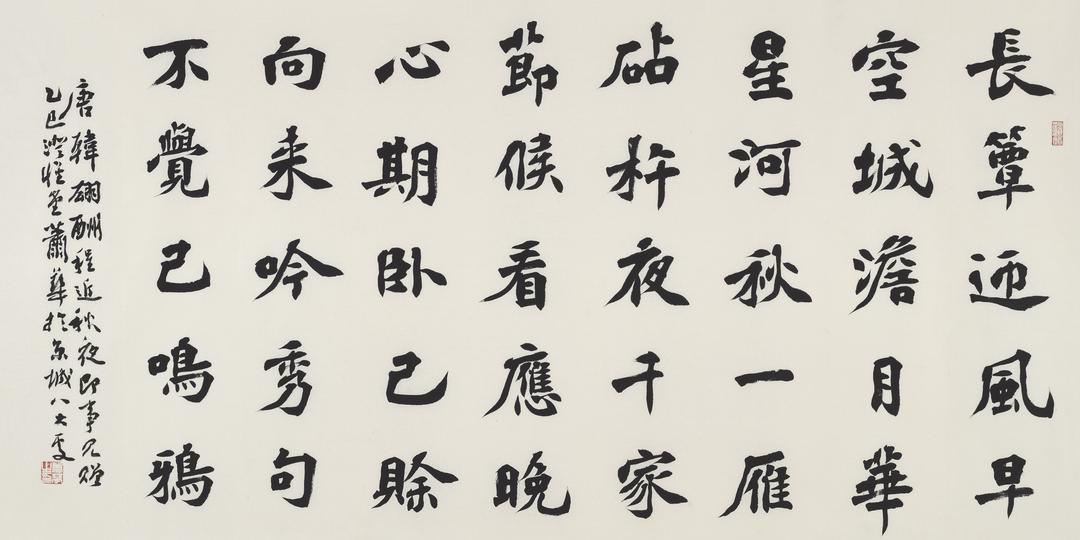 長簟迎風早
空城澹月華
星河秋一雁
砧杵夜千家
節候看應晚
心期卧已賖
向来吟秀句
不覺已鳴鴉
唐韓翃酬程近秋夜即事見贈
乙巳澄堂蕭華於京城八大處